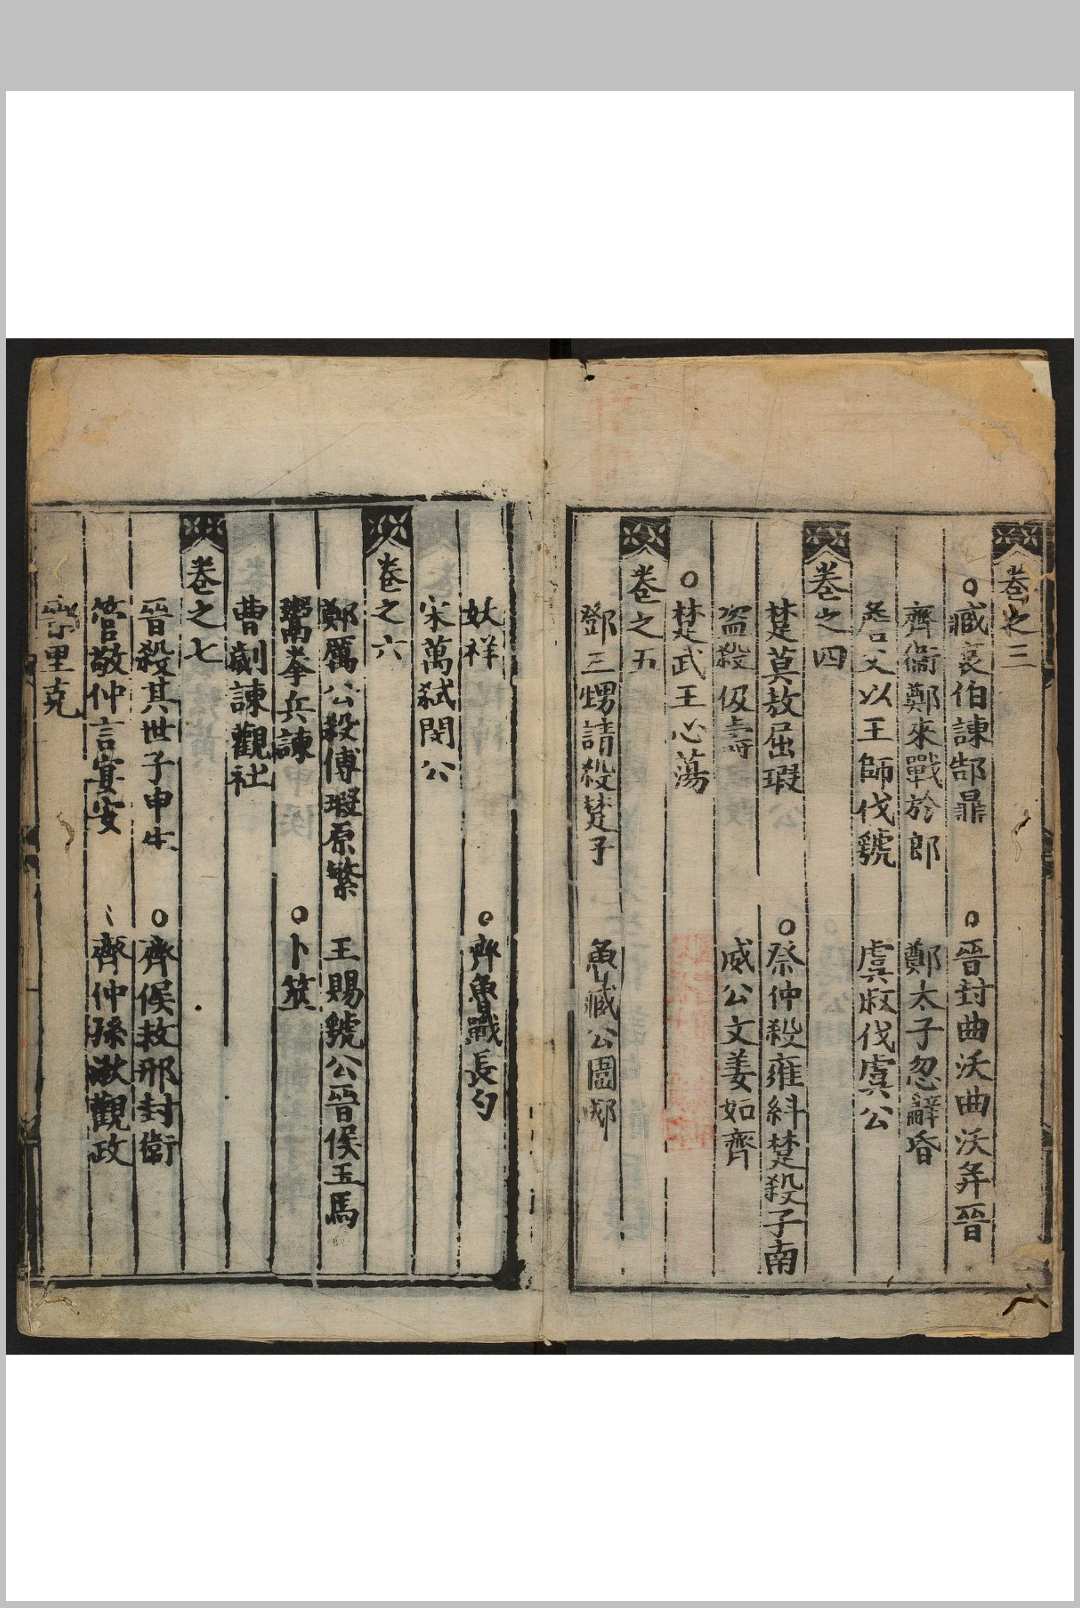 卷之三
○臧哀伯諫郜鼎 ○晉封曲沃曲沃并晉
齊衞鄭來戰於郎 鄭太子忽辭昏
詹父以王師伐虢 虞叔伐虞公
卷之四
楚莫敖屈瑕 ○祭仲殺雍糾楚殺子南
盗殺伋壽 威公文姜如齊
○楚武王心蕩
卷之五
鄧三甥請殺楚子 魯臧公圍郕
妖祥 ○齊魯戰長勺
宋萬弑閔公
卷之六
鄭厲公殺傅瑕原繁 王賜虢公晉侯玉馬
鬻拳兵諫 ○卜筮
曹劌諫觀社
卷之七
晉殺其世子申生 ○齊侯救邢封衛
管敬仲言宴安 齊仲孫湫觀政
里克